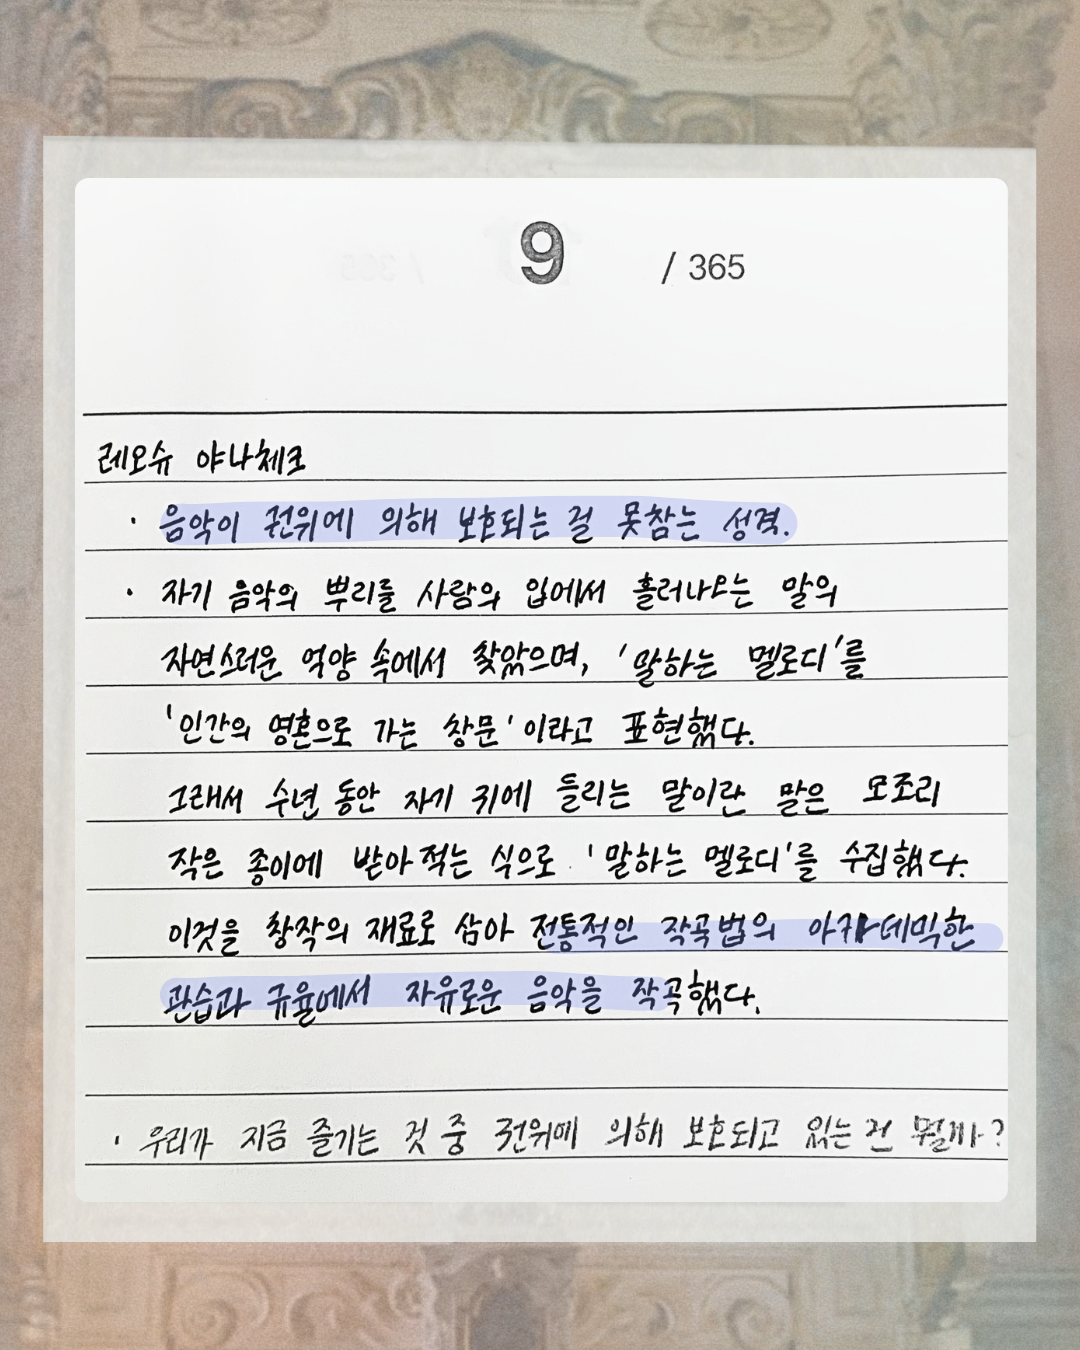 9 / 365
레오슈 야나체크
· 음악이 권위에 의해 보호되는 걸 못참는 성격.
· 자기 음악의 뿌리를 사람의 입에서 흘러나오는 말의
자연스러운 억양 속에서 찾았으며, '말하는 멜로디'를
'인간의 영혼으로 가는 창문'이라고 표현했다.
그래서 수년 동안 자기 귀에 들리는 말이란 말은 모조리
작은 종이에 받아 적는 식으로 '말하는 멜로디'를 수집했다.
이것을 창작의 재료로 삼아 전통적인 작곡법의 아카데믹한
관습과 규율에서 자유로운 음악을 작곡했다.
· 우리가 지금 즐기는 것 중 권위에 의해 보호되고 있는 건 뭘까?